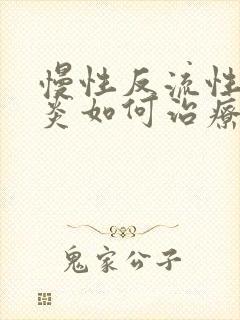 慢性反流性
炎如何治療
鬼家公子